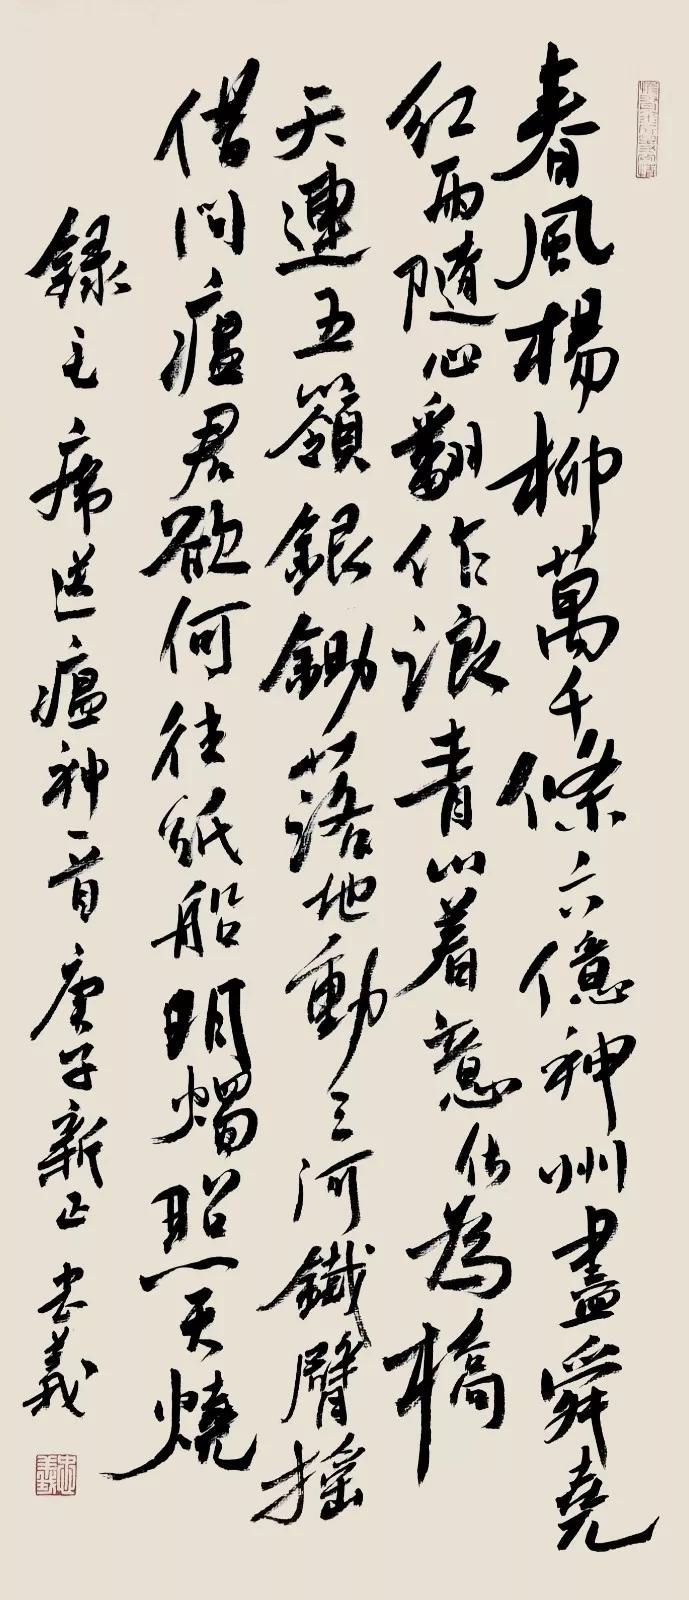 春風楊柳萬千條六億神州盡舜堯
紅雨隨心翻作浪青山着意化為橋
天連五嶺銀鋤落地動三河鐵臂搖
借問瘟君欲何往紙船明燭照天燒
錄毛主席送瘟神一首庚子新正忠義
忠義